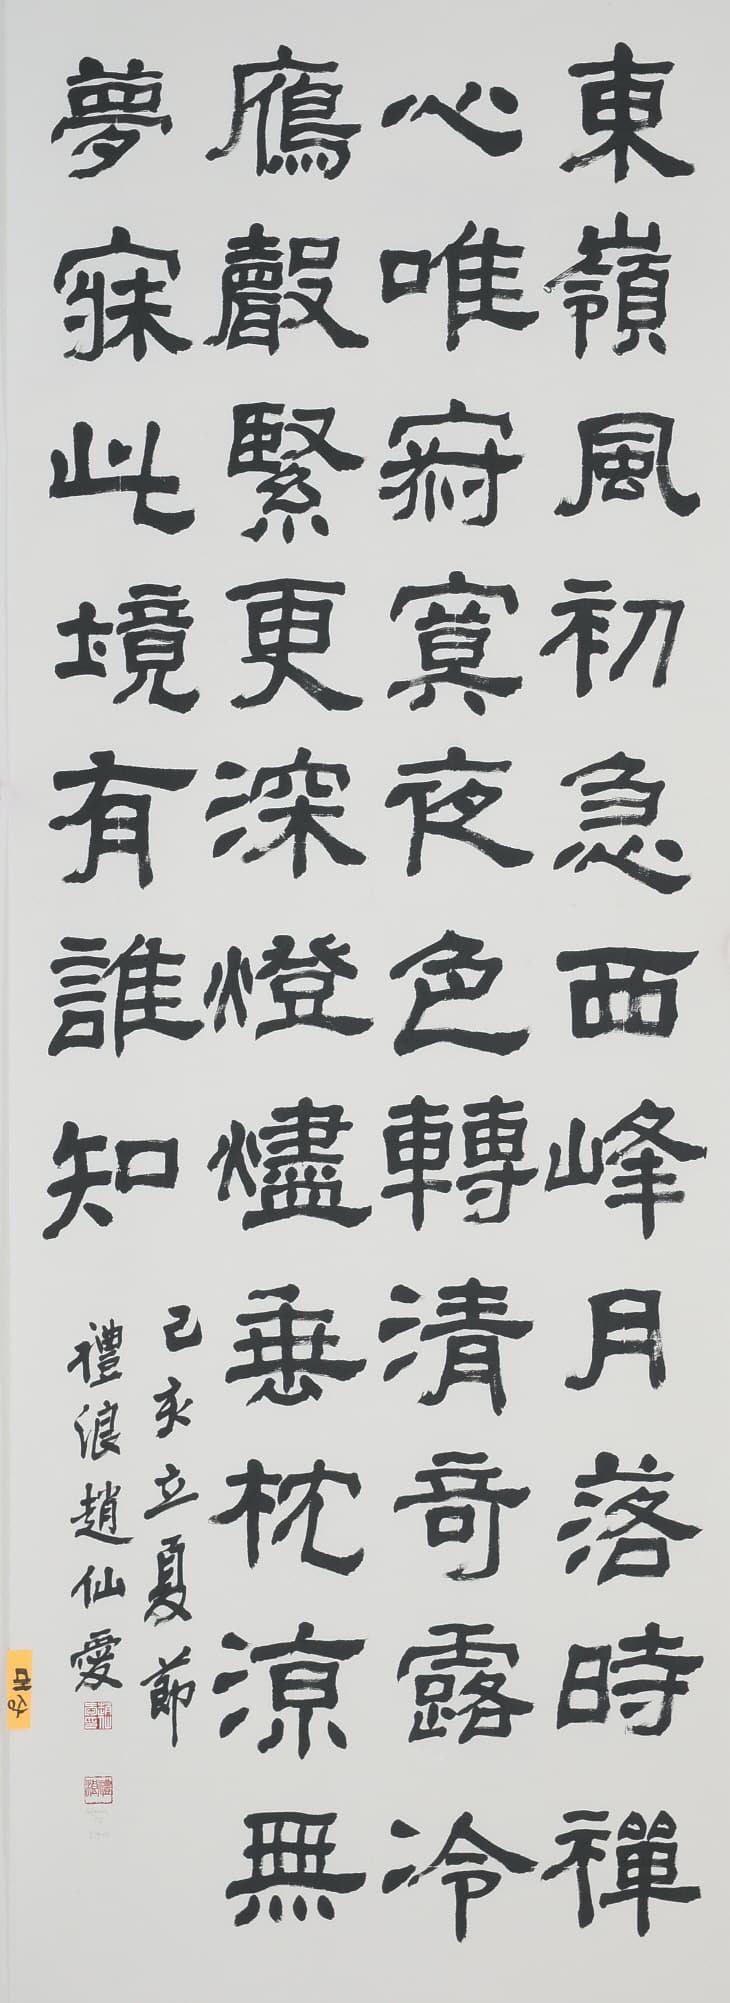 東嶺風初急西峰月落時禪
心唯寂寞夜色轉清竒露冷
鴈聲緊更深燈燼垂枕涼無
夢寐此境有誰知
己亥立夏節
禮浪趙仙愛